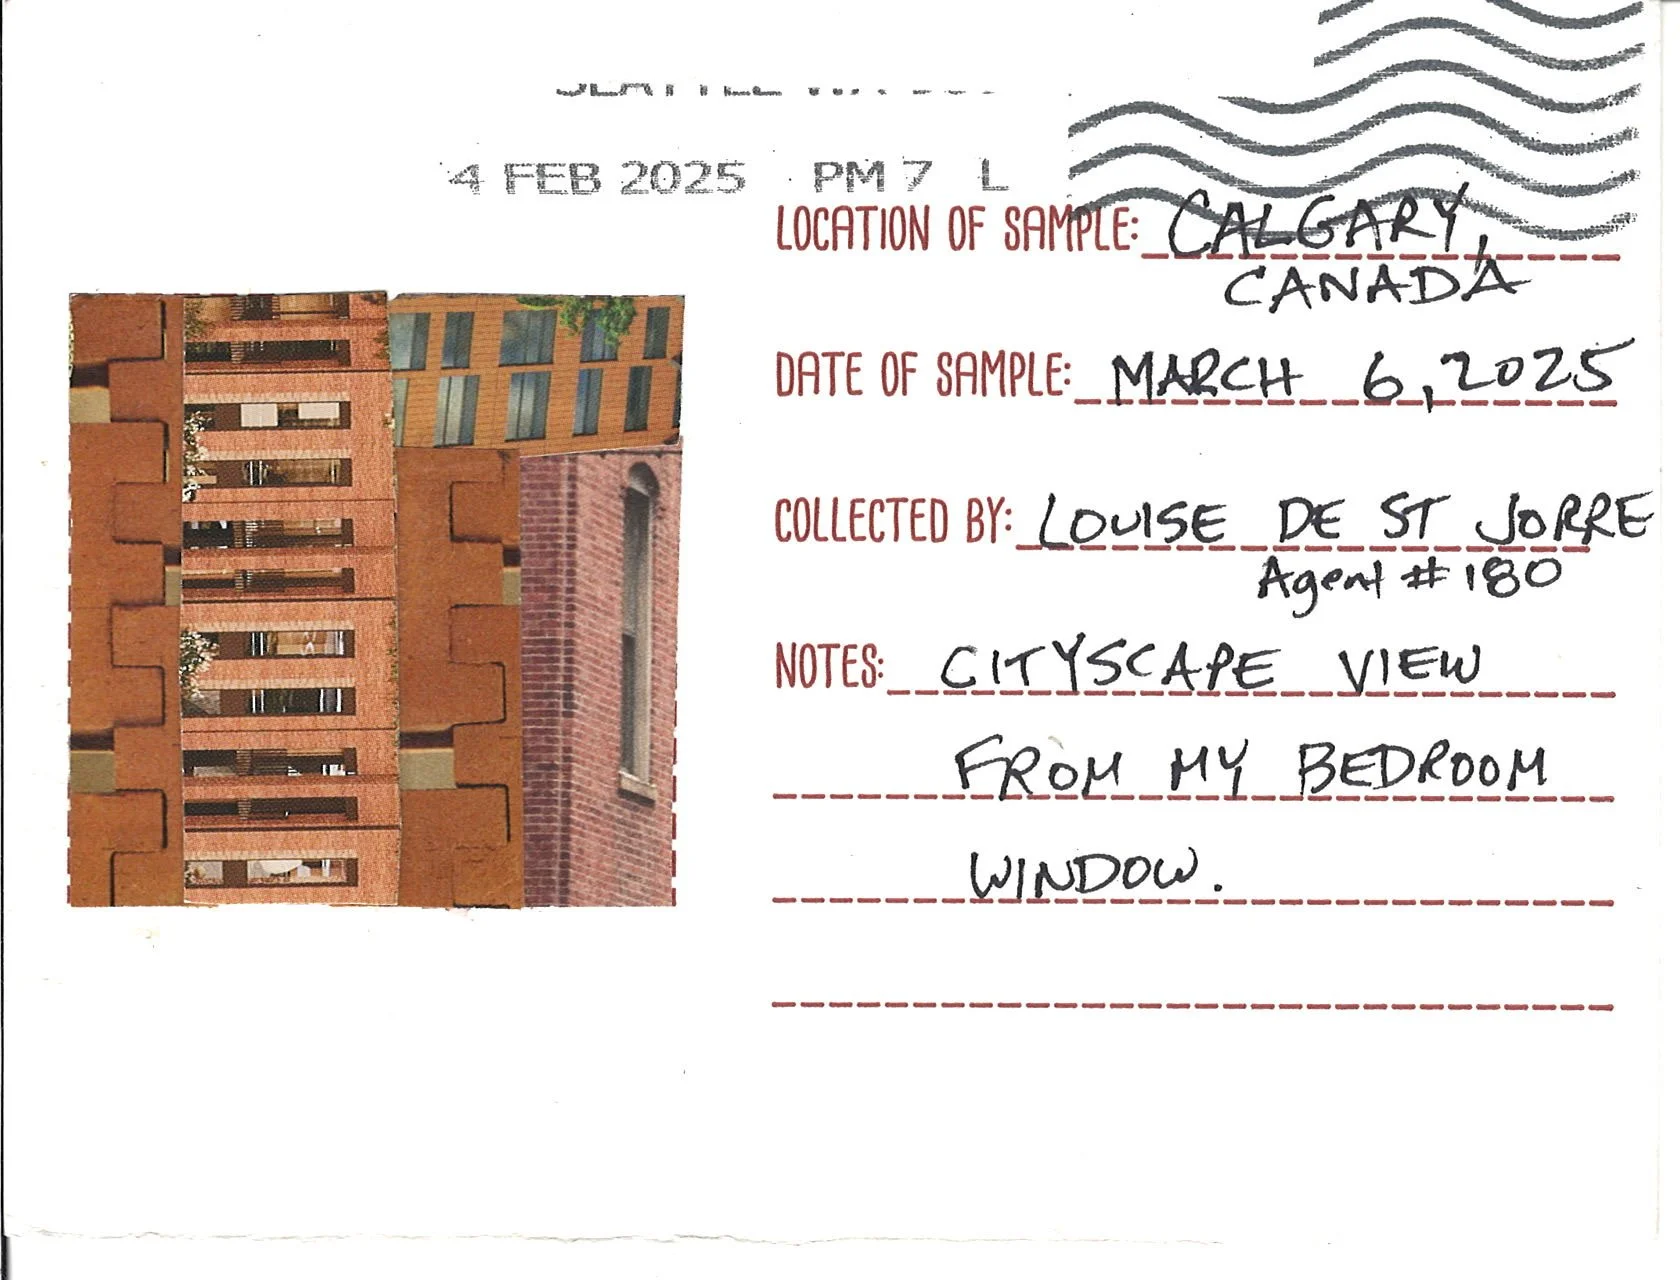 SEATTLE WA
4 FEB 2025 PM 7 L
LOCATION OF SAMPLE: CALGARY,
CANADA
DATE OF SAMPLE: MARCH 6, 2025
COLLECTED BY: LOUISE DE ST JORRE
Agent # 180
NOTES: CITYSCAPE VIEW
FROM MY BEDROOM
WINDOW.